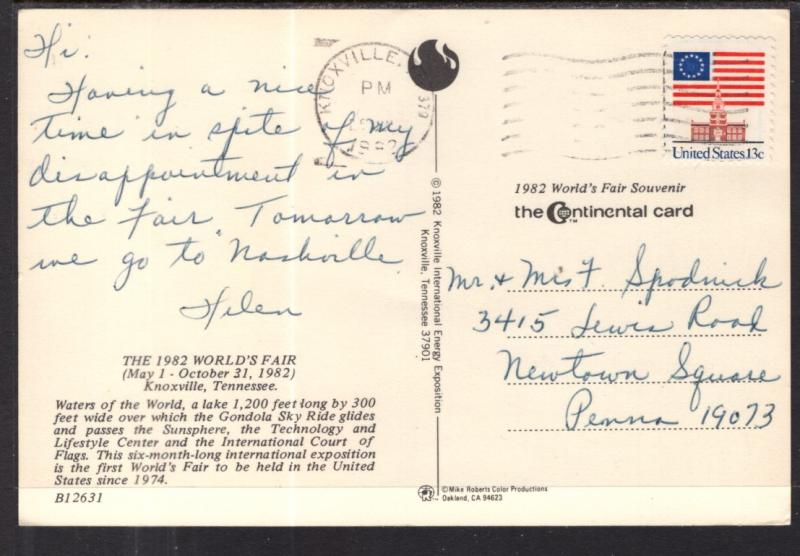 Hi:
Having a nice
time in spite of my
disappointment in
the Fair. Tomorrow
we go to Nashville.
Helen
THE 1982 WORLD'S FAIR
(May 1 - October 31, 1982)
Knoxville, Tennessee.
Waters of the World, a lake 1,200 feet long by 300
feet wide over which the Gondola Sky Ride glides
and passes the Sunsphere, the Technology and
Lifestyle Center and the International Court of
Flags. This six-month-long international exposition
is the first World's Fair to be held in the United
States since 1974.
B12631
KNOXVILLE,
PM
1982
379
© 1982 Knoxville International Energy Exposition
Knoxville, Tennessee 37901
©Mike Roberts Color Productions
Oakland, CA 94623
United States 13c
1982 World's Fair Souvenir
the Continental card
TM
Mr. + Mrs F. Spodnick
3415 Lewis Road
Newtown Square
Penna 19073